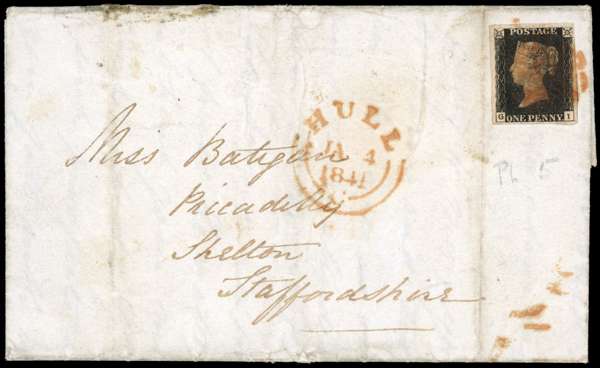 POSTAGE
G ONE PENNY I
HULL
JA 4
1841
Miss Batigan
Piccadilly
Shelton
Staffordshire
Pl. 5